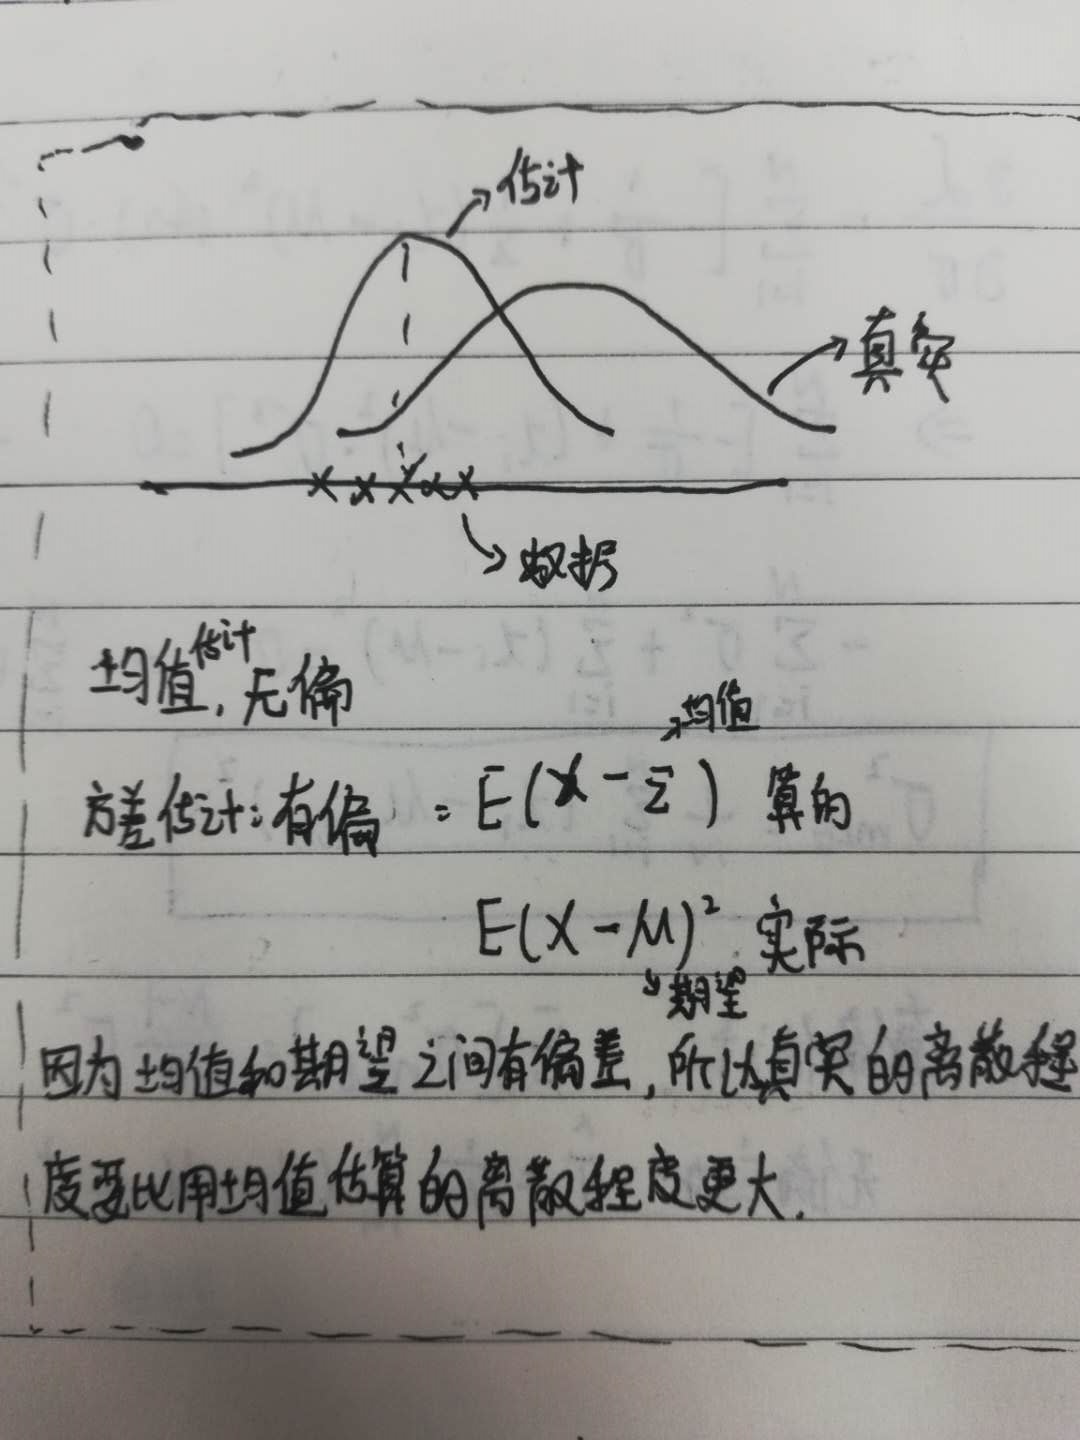 估计
真实
数据
均值估计,无偏
均值
方差估计:有偏 : E(X-Σ) 算的
E(X-μ)². 实际
期望
因为均值和期望之间有偏差,所以真实的离散程
度要比用均值估算的离散程度更大.